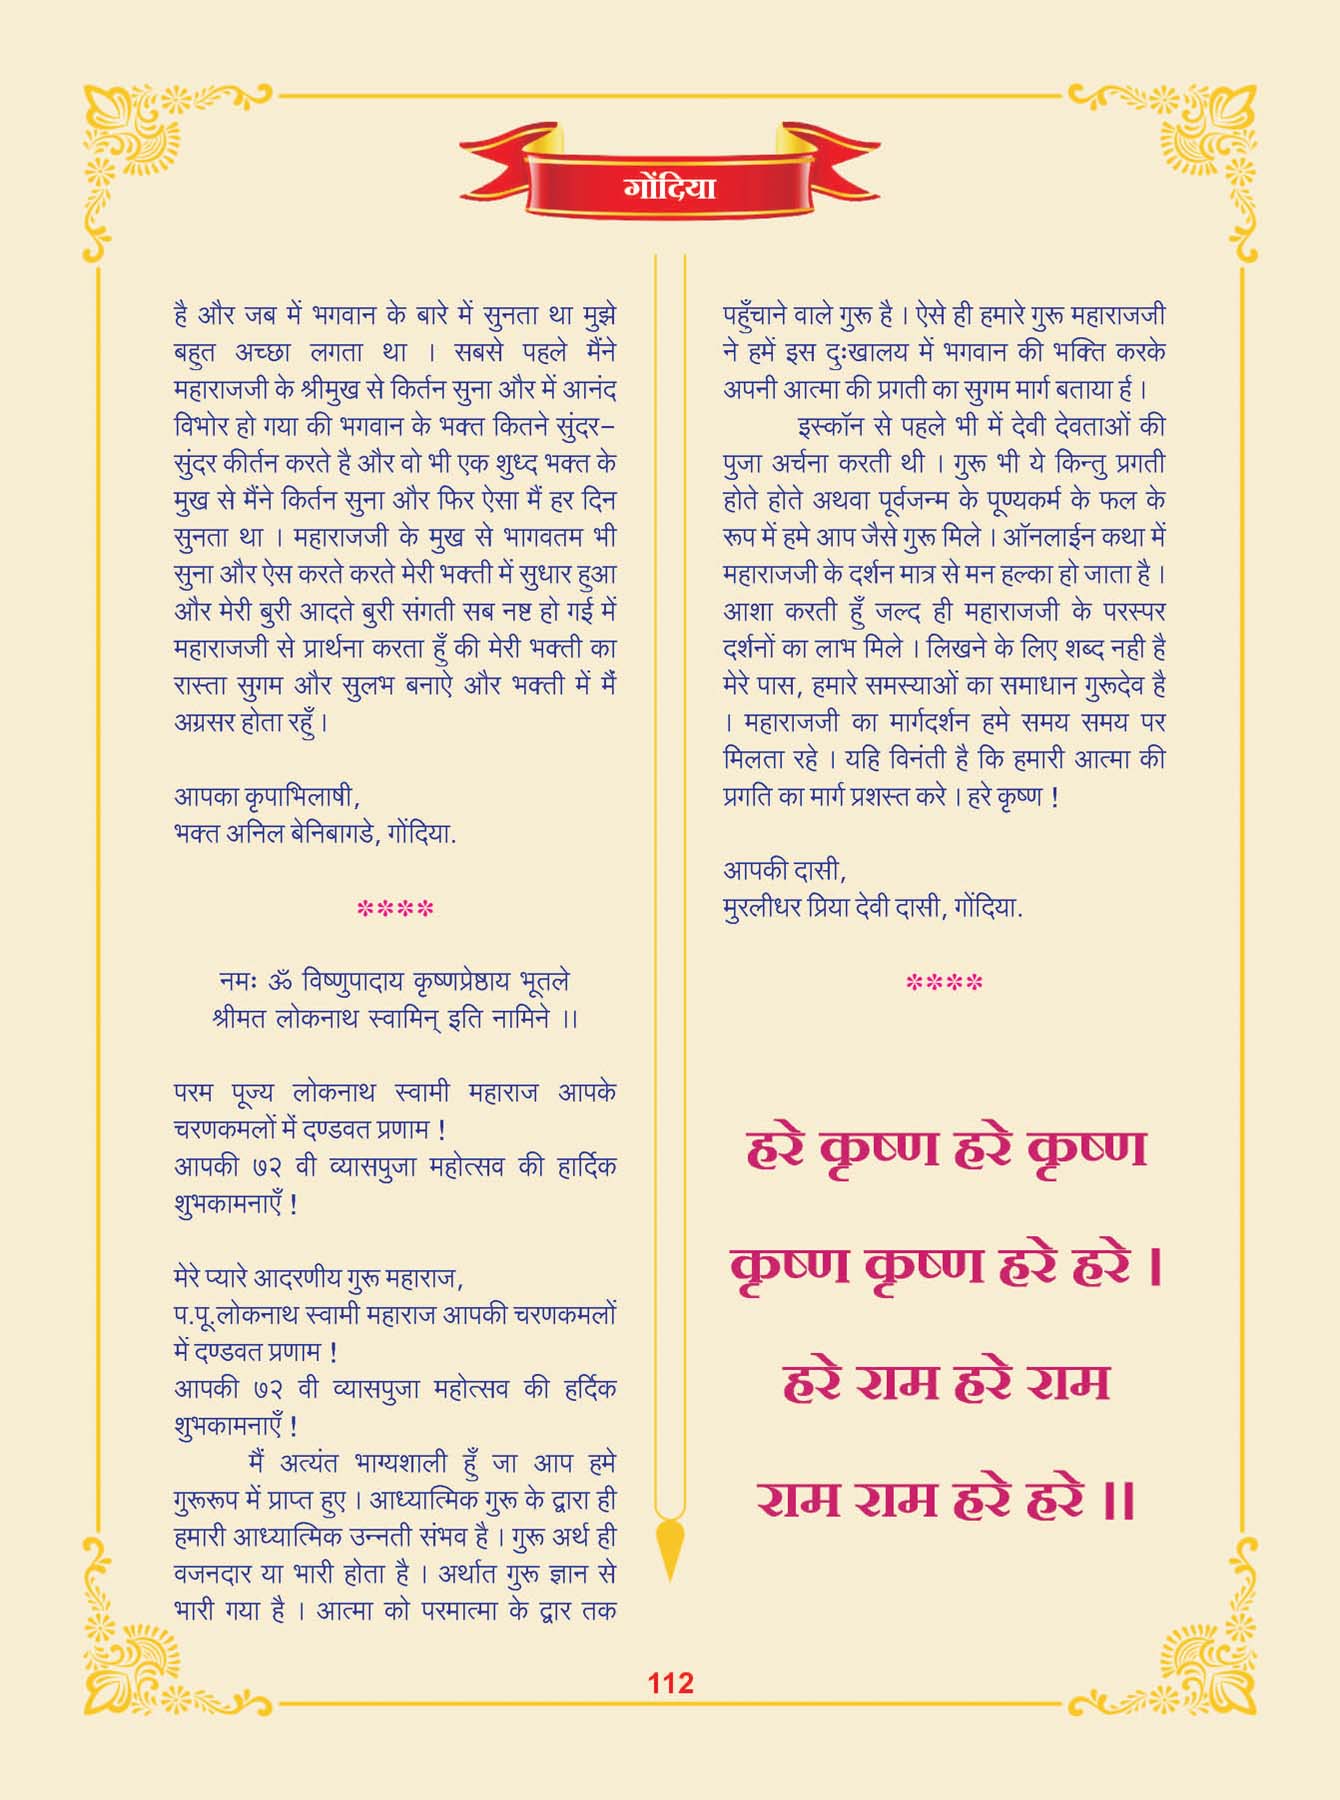 गोंदिया
है और जब में भगवान के बारे में सुनता था मुझे
बहुत अच्छा लगता था । सबसे पहले मैंने
महाराजजी के श्रीमुख से किर्तन सुना और में आनंद
विभोर हो गया की भगवान के भक्त कितने सुंदर-
सुंदर कीर्तन करते है और वो भी एक शुध्द भक्त के
मुख से मैंने किर्तन सुना और फिर ऐसा मैं हर दिन
सुनता था । महाराजजी के मुख से भागवतम भी
सुना और ऐस करते करते मेरी भक्ती में सुधार हुआ
और मेरी बुरी आदते बुरी संगती सब नष्ट हो गई में
महाराजजी से प्रार्थना करता हुँ की मेरी भक्ती का
रास्ता सुगम और सुलभ बनाऐ और भक्ती में मैं
अग्रसर होता रहुँ ।
आपका कृपाभिलाषी,
भक्त अनिल बेनिबागडे, गोंदिया.
****
नमः ॐ विष्णुपादाय कृष्णप्रेष्ठाय भूतले
श्रीमत लोकनाथ स्वामिन् इति नामिने ।।
परम पूज्य लोकनाथ स्वामी महाराज आपके
चरणकमलों में दण्डवत प्रणाम !
आपकी ७२ वी व्यासपुजा महोत्सव की हार्दिक
शुभकामनाएँ !
मेरे प्यारे आदरणीय गुरू महाराज,
प.पू.लोकनाथ स्वामी महाराज आपकी चरणकमलों
में दण्डवत प्रणाम !
आपकी ७२ वी व्यासपुजा महोत्सव की हर्दिक
शुभकामनाएँ !
मैं अत्यंत भाग्यशाली हुँ जा आप हमे
गुरूरूप में प्राप्त हुए । आध्यात्मिक गुरू के द्वारा ही
हमारी आध्यात्मिक उन्नती संभव है । गुरू अर्थ ही
वजनदार या भारी होता है । अर्थात गुरू ज्ञान से
भारी गया है । आत्मा को परमात्मा के द्वार तक
पहुँचाने वाले गुरू है । ऐसे ही हमारे गुरू महाराजजी
ने हमें इस दुःखालय में भगवान की भक्ति करके
अपनी आत्मा की प्रगती का सुगम मार्ग बताया र्ह ।
इस्कॉन से पहले भी में देवी देवताओं की
पुजा अर्चना करती थी । गुरू भी ये किन्तु प्रगती
होते होते अथवा पूर्वजन्म के पूण्यकर्म के फल के
रूप में हमे आप जैसे गुरू मिले । ऑनलाईन कथा में
महाराजजी के दर्शन मात्र से मन हल्का हो जाता है ।
आशा करती हुँ जल्द ही महाराजजी के परस्पर
दर्शनों का लाभ मिले । लिखने के लिए शब्द नही है
मेरे पास, हमारे समस्याओं का समाधान गुरूदेव है
। महाराजजी का मार्गदर्शन हमे समय समय पर
मिलता रहे । यहि विनंती है कि हमारी आत्मा की
प्रगति का मार्ग प्रशस्त करे । हरे कृष्ण !
आपकी दासी,
मुरलीधर प्रिया देवी दासी, गोंदिया.
****
हरे कृष्ण हरे कृष्ण
कृष्ण कृष्ण हरे हरे ।
हरे राम हरे राम
राम राम हरे हरे ।।
112